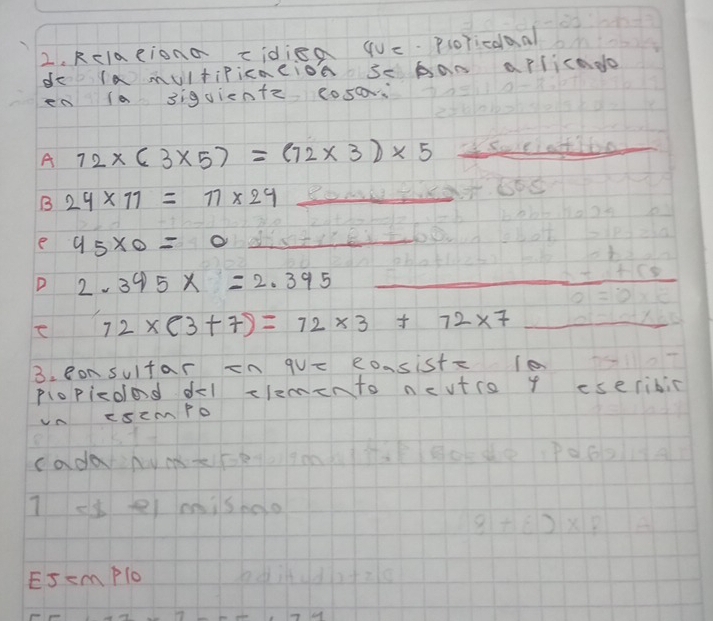 2. Relaciona e idica que propiedad
de la multiplicación se han aplicado
en la siguiente cosa:
A 12 x (3 x 5) = (12 x 3) x 5 asociatiba
B 24 x 11 = 11 x 24
c 45 x 0 = 0
D 2.345 x = 2.345
E 12 x (3 + 7) = 12 x 3 + 12 x 7
3. consultar en que consiste la
propiedad del elemento neutro y escribir
un esemplo
cada
1 es el mismo
Esemplo